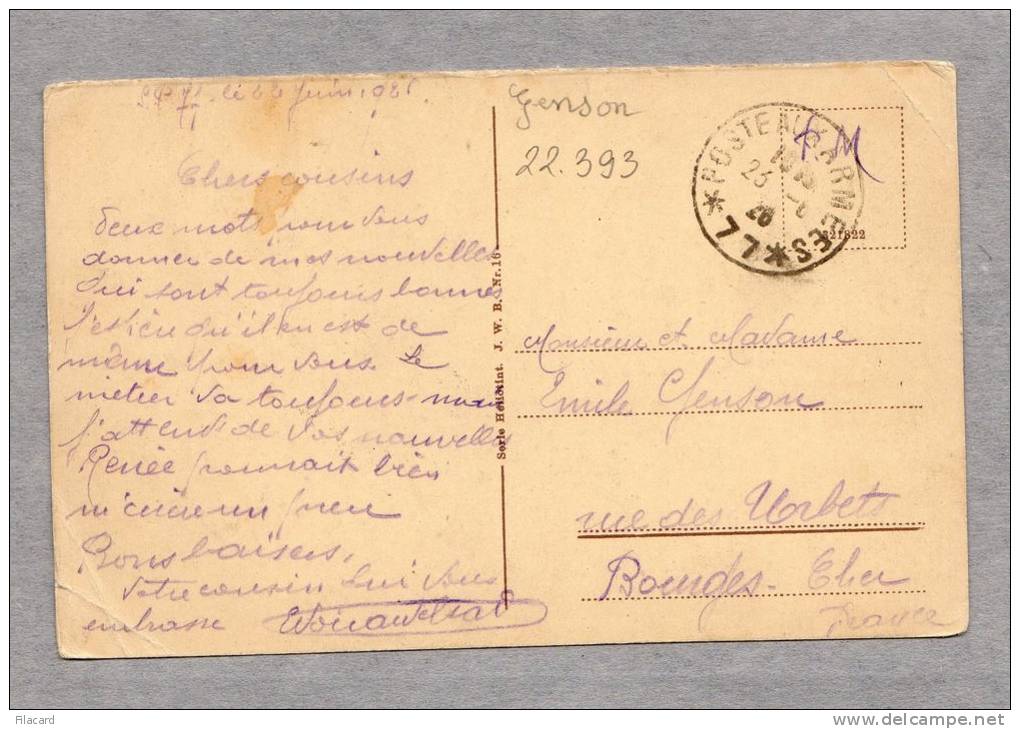 le 22 juin 192
Chers cousins
deux mots pour vous
donner de mes nouvelles
qui sont toujours bonnes
j'espère qu'il en est de
même pour vous. Le
métier va toujours
j'attends de vos nouvelles
Renée pourrait bien
m'écrire un peu
Bons baisers,
Votre cousin qui vous
embrasse
Serie Heliotint. J. W. B. Nr. 16
Genson
22.393
F M
POSTE AUX ARMEES * 77 *
25 -6
26
321822
Monsieur et Madame
Emile Genson
rue des Vorbets
Bourges - Cher
France
Filacard
www.delcampe.net